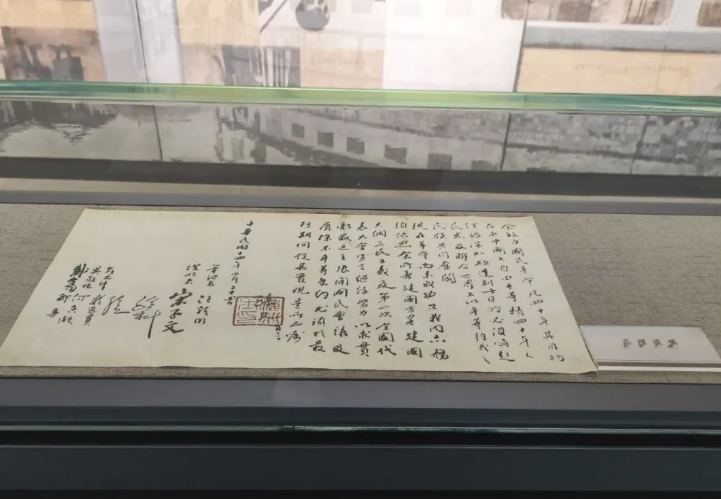 余致力國民革命凡四十年其目的
在求中國之自由平等積四十年之
經驗深知欲達到此目的必須喚起
民眾及聯合世界上以平等待我之
民族共同奮鬥
現在革命尚未成功凡我同志務
須依照余所著建國方略建國
大綱三民主義及第一次全國代
表大會宣言繼續努力以求貫
徹最近主張開國民會議及
廢除不平等條約尤須於最
短期間促其實現是所至囑
中華民國十四年二月二十四日
筆記者 汪精衛
證明者 宋子文
孫科
戴恩賽
吳敬恆 何香凝